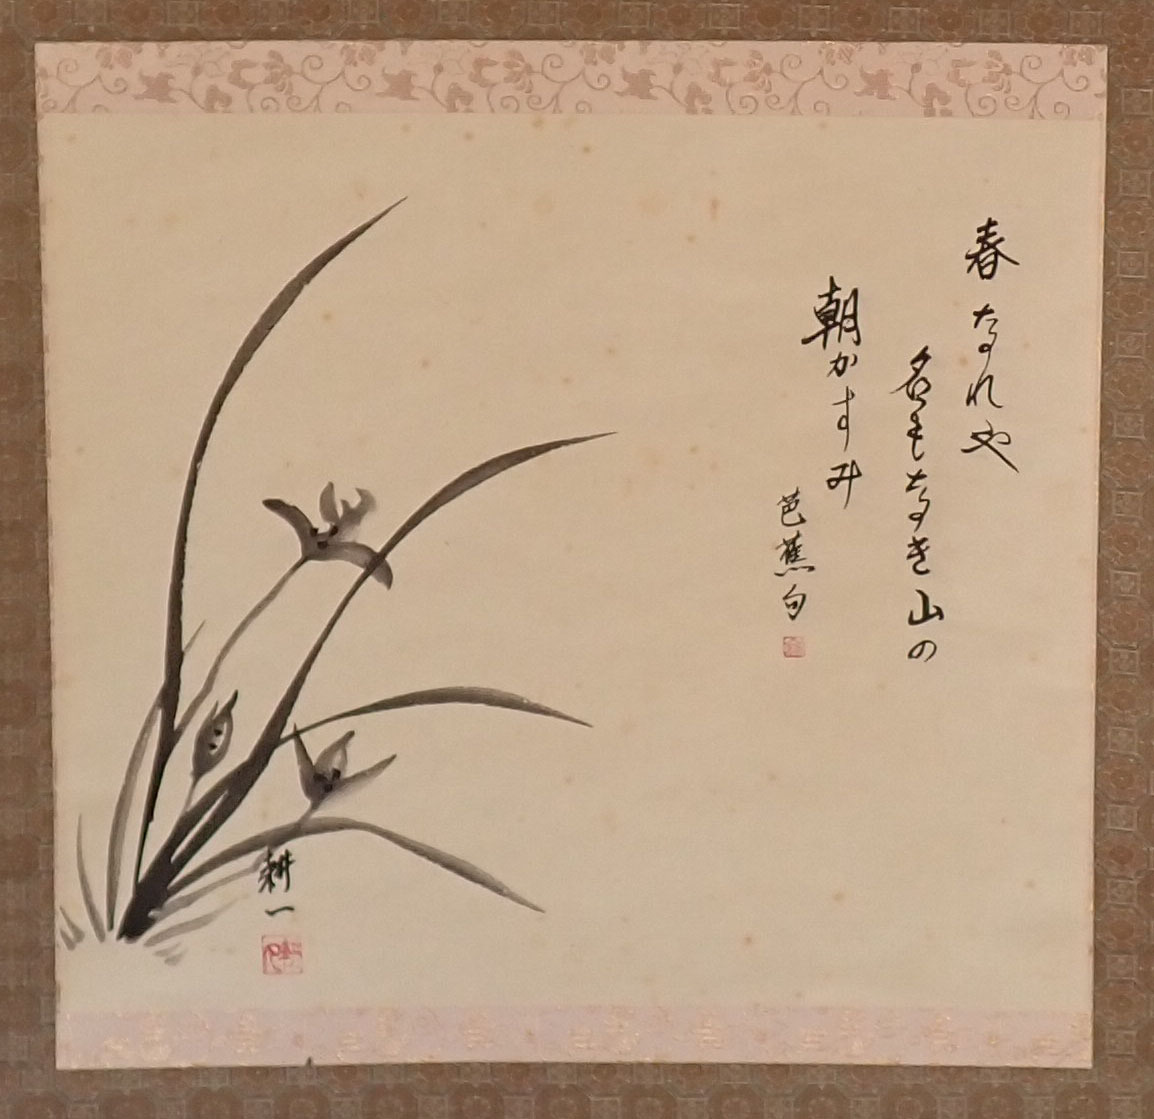 春なれや
名もなき山の
朝かすみ
芭蕉句
耕一